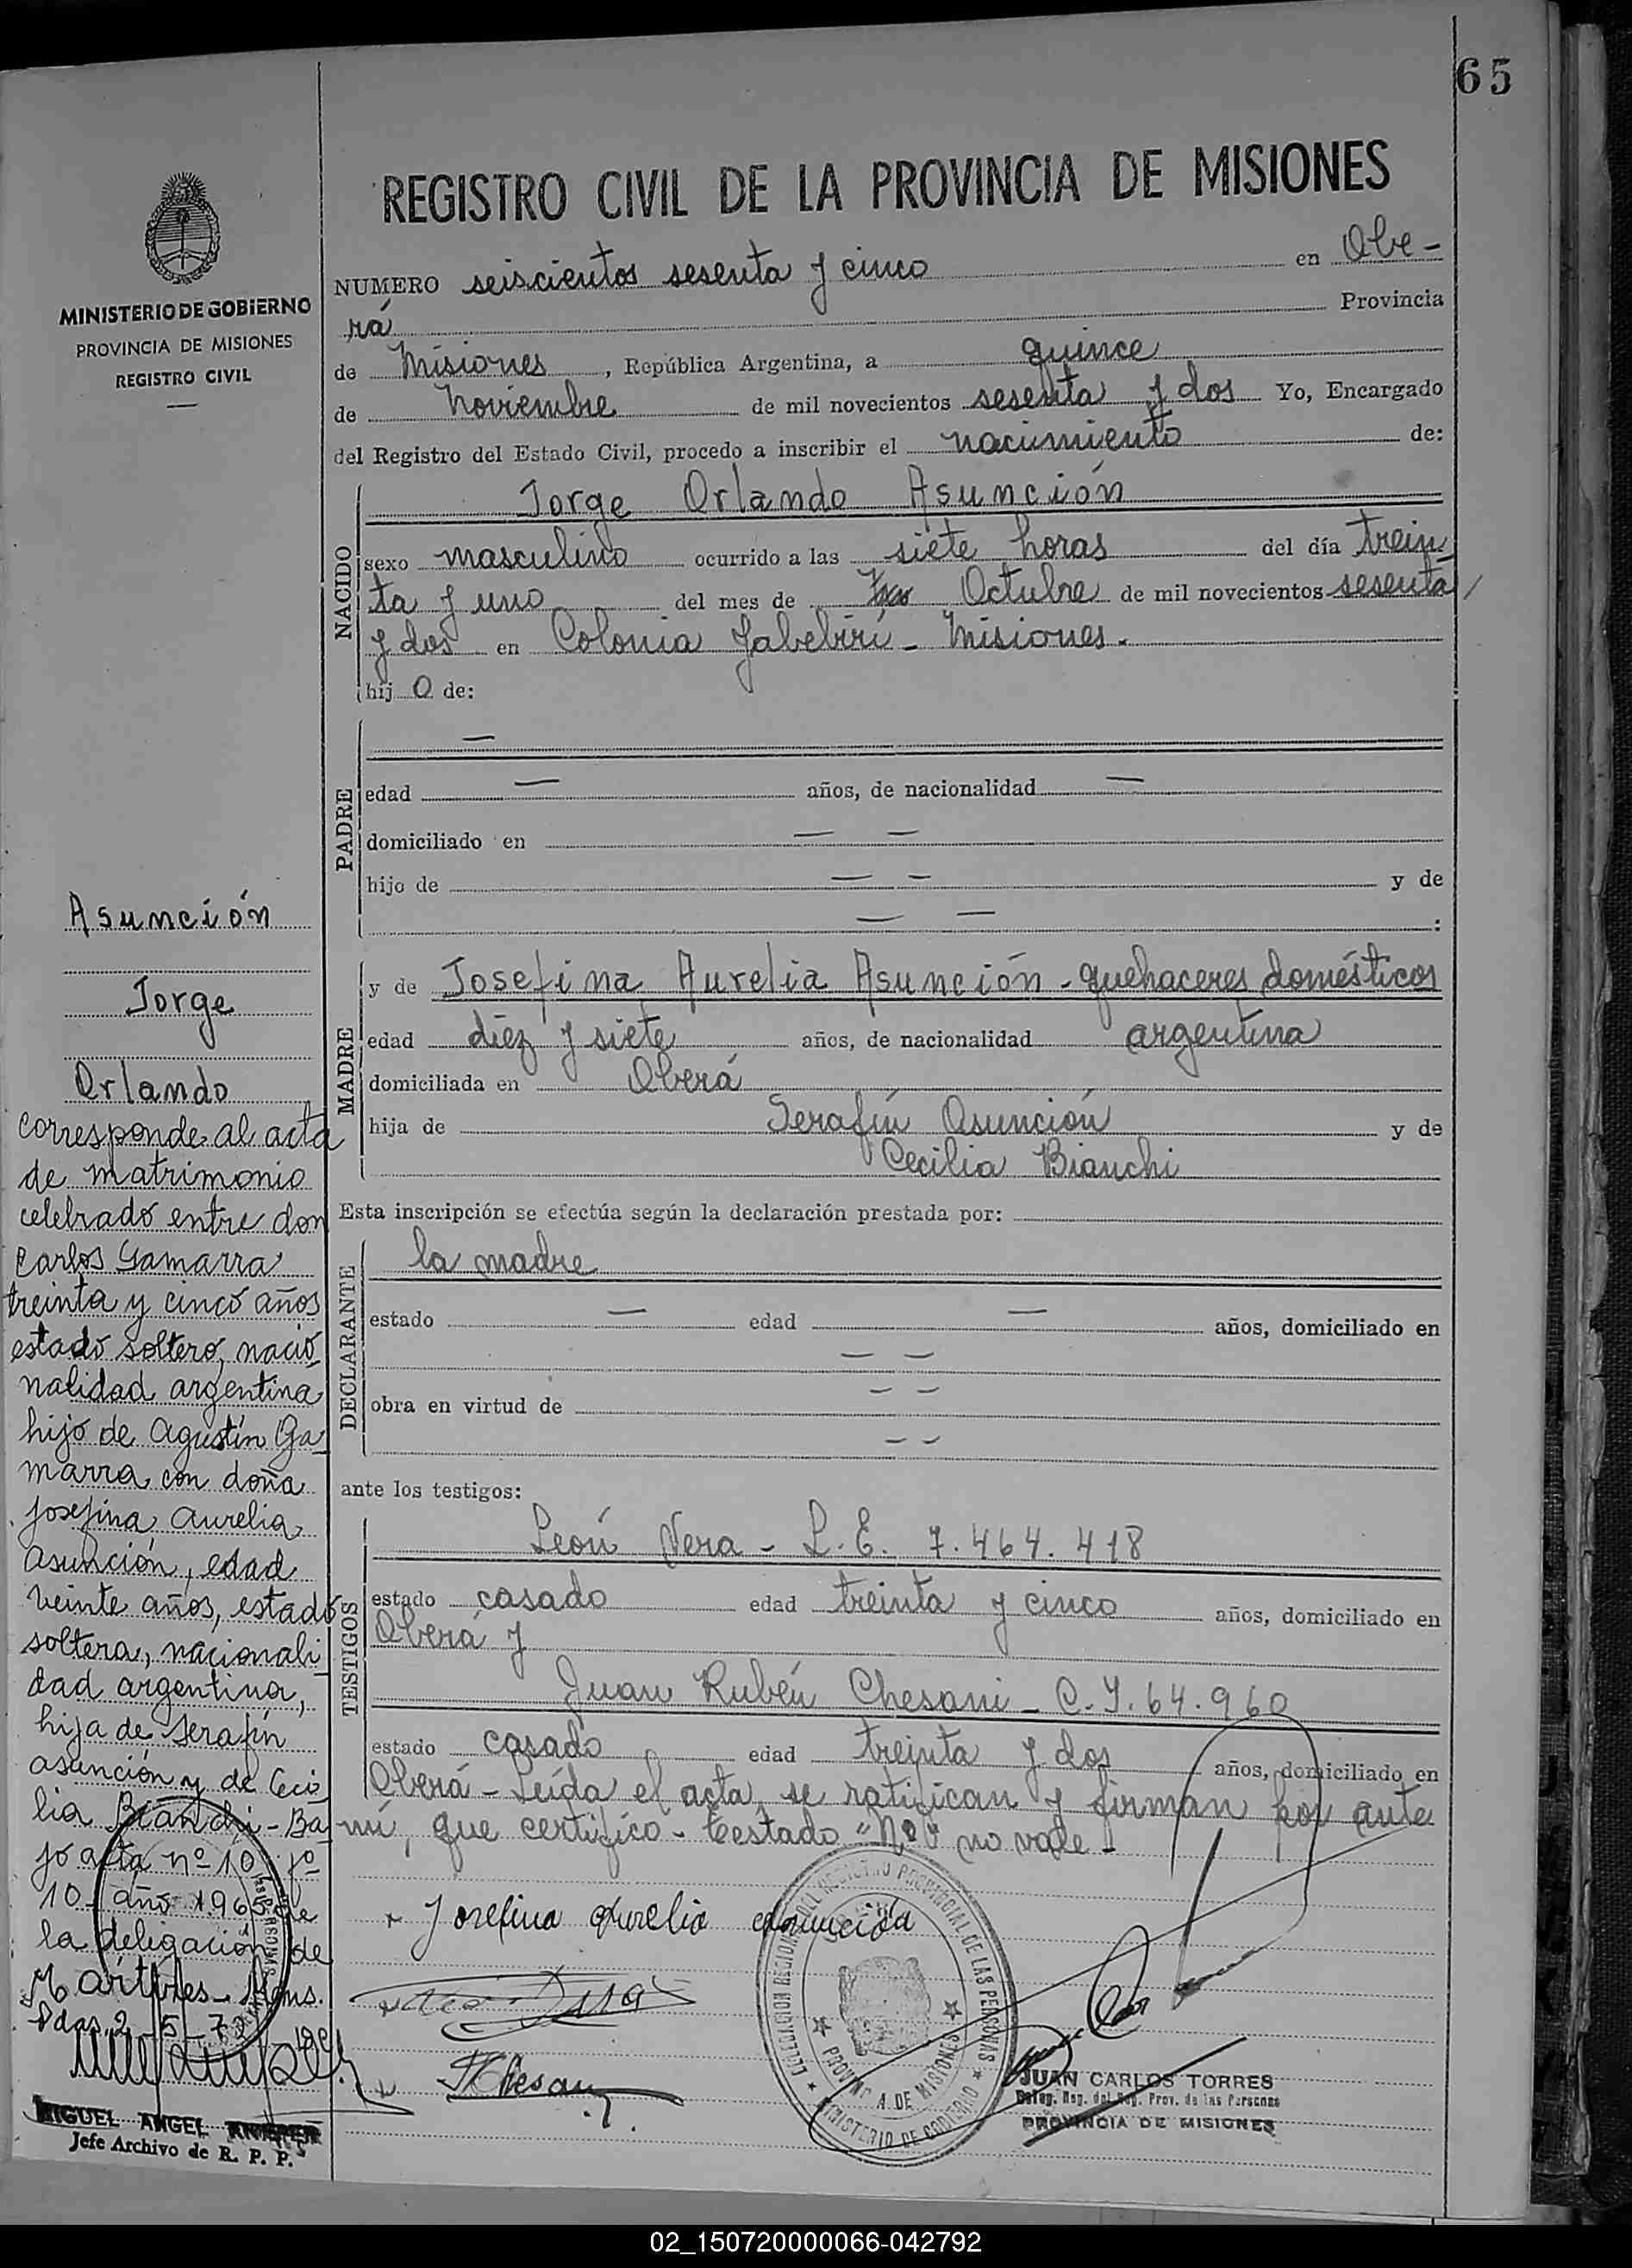 65
REGISTRO CIVIL DE LA PROVINCIA DE MISIONES
MINISTERIO DE GOBIERNO
PROVINCIA DE MISIONES
REGISTRO CIVIL
NUMERO seiscientos sesenta y cinco en Obe-
rá Provincia
de Misiones, República Argentina, a quince
de Noviembre de mil novecientos sesenta y dos Yo, Encargado
del Registro del Estado Civil, procedo a inscribir el nacimiento de:
NACIDO
Jorge Orlando Asunción
sexo masculino ocurrido a las siete horas del día trein
ta y uno del mes de Octubre de mil novecientos sesenta
y dos en Colonia Yabebirí - Misiones.
hij o de:
PADRE
—
edad — años, de nacionalidad —
domiciliado en — —
hijo de — — y de
— — :
MADRE
y de Josefina Aurelia Asunción - quehaceres domésticos
edad diez y siete años, de nacionalidad argentina
domiciliada en Oberá
hija de Serafín Asunción y de
Cecilia Bianchi
Esta inscripción se efectúa según la declaración prestada por:
DECLARANTE
la madre
estado — edad — años, domiciliado en
— —
obra en virtud de — —
— —
ante los testigos:
TESTIGOS
León Vera - L.E. 7.464.418
estado casado edad treinta y cinco años, domiciliado en
Oberá y
Juan Rubén Chesani - C.I. 64.960
estado casado edad treinta y dos años, domiciliado en
Oberá - Leída el acta se ratifican y firman por ante
mí, que certifico - Testado no vale -
Josefina Aurelia Asunción
Chesani
DELEGACION REGIONAL DEL REGISTRO PROVINCIAL DE LAS PERSONAS
PROVINCIA DE MISIONES
MINISTERIO DE GOBIERNO
JUAN CARLOS TORRES
Deleg. Reg. del Reg. Prov. de las Personas
PROVINCIA DE MISIONES
Asunción
Jorge
Orlando
corresponde al acta
de matrimonio
celebrado entre don
Carlos Gamarra
treinta y cinco años
estado soltero, nacio
nalidad argentina
hijo de Agustín Ga
marra con doña
Josefina Aurelia
Asunción, edad
veinte años, estado
soltera, nacionali
dad argentina,
hija de Serafín
Asunción y de Ceci
lia Bianchi - Ba
jo acta nº 10 fº
10 año 1965 de
la delegación de
Mártires - Mnes.
Pdas, 2-5-7
MIGUEL ANGEL
Jefe Archivo de R. P. P.
02_150720000066-042792